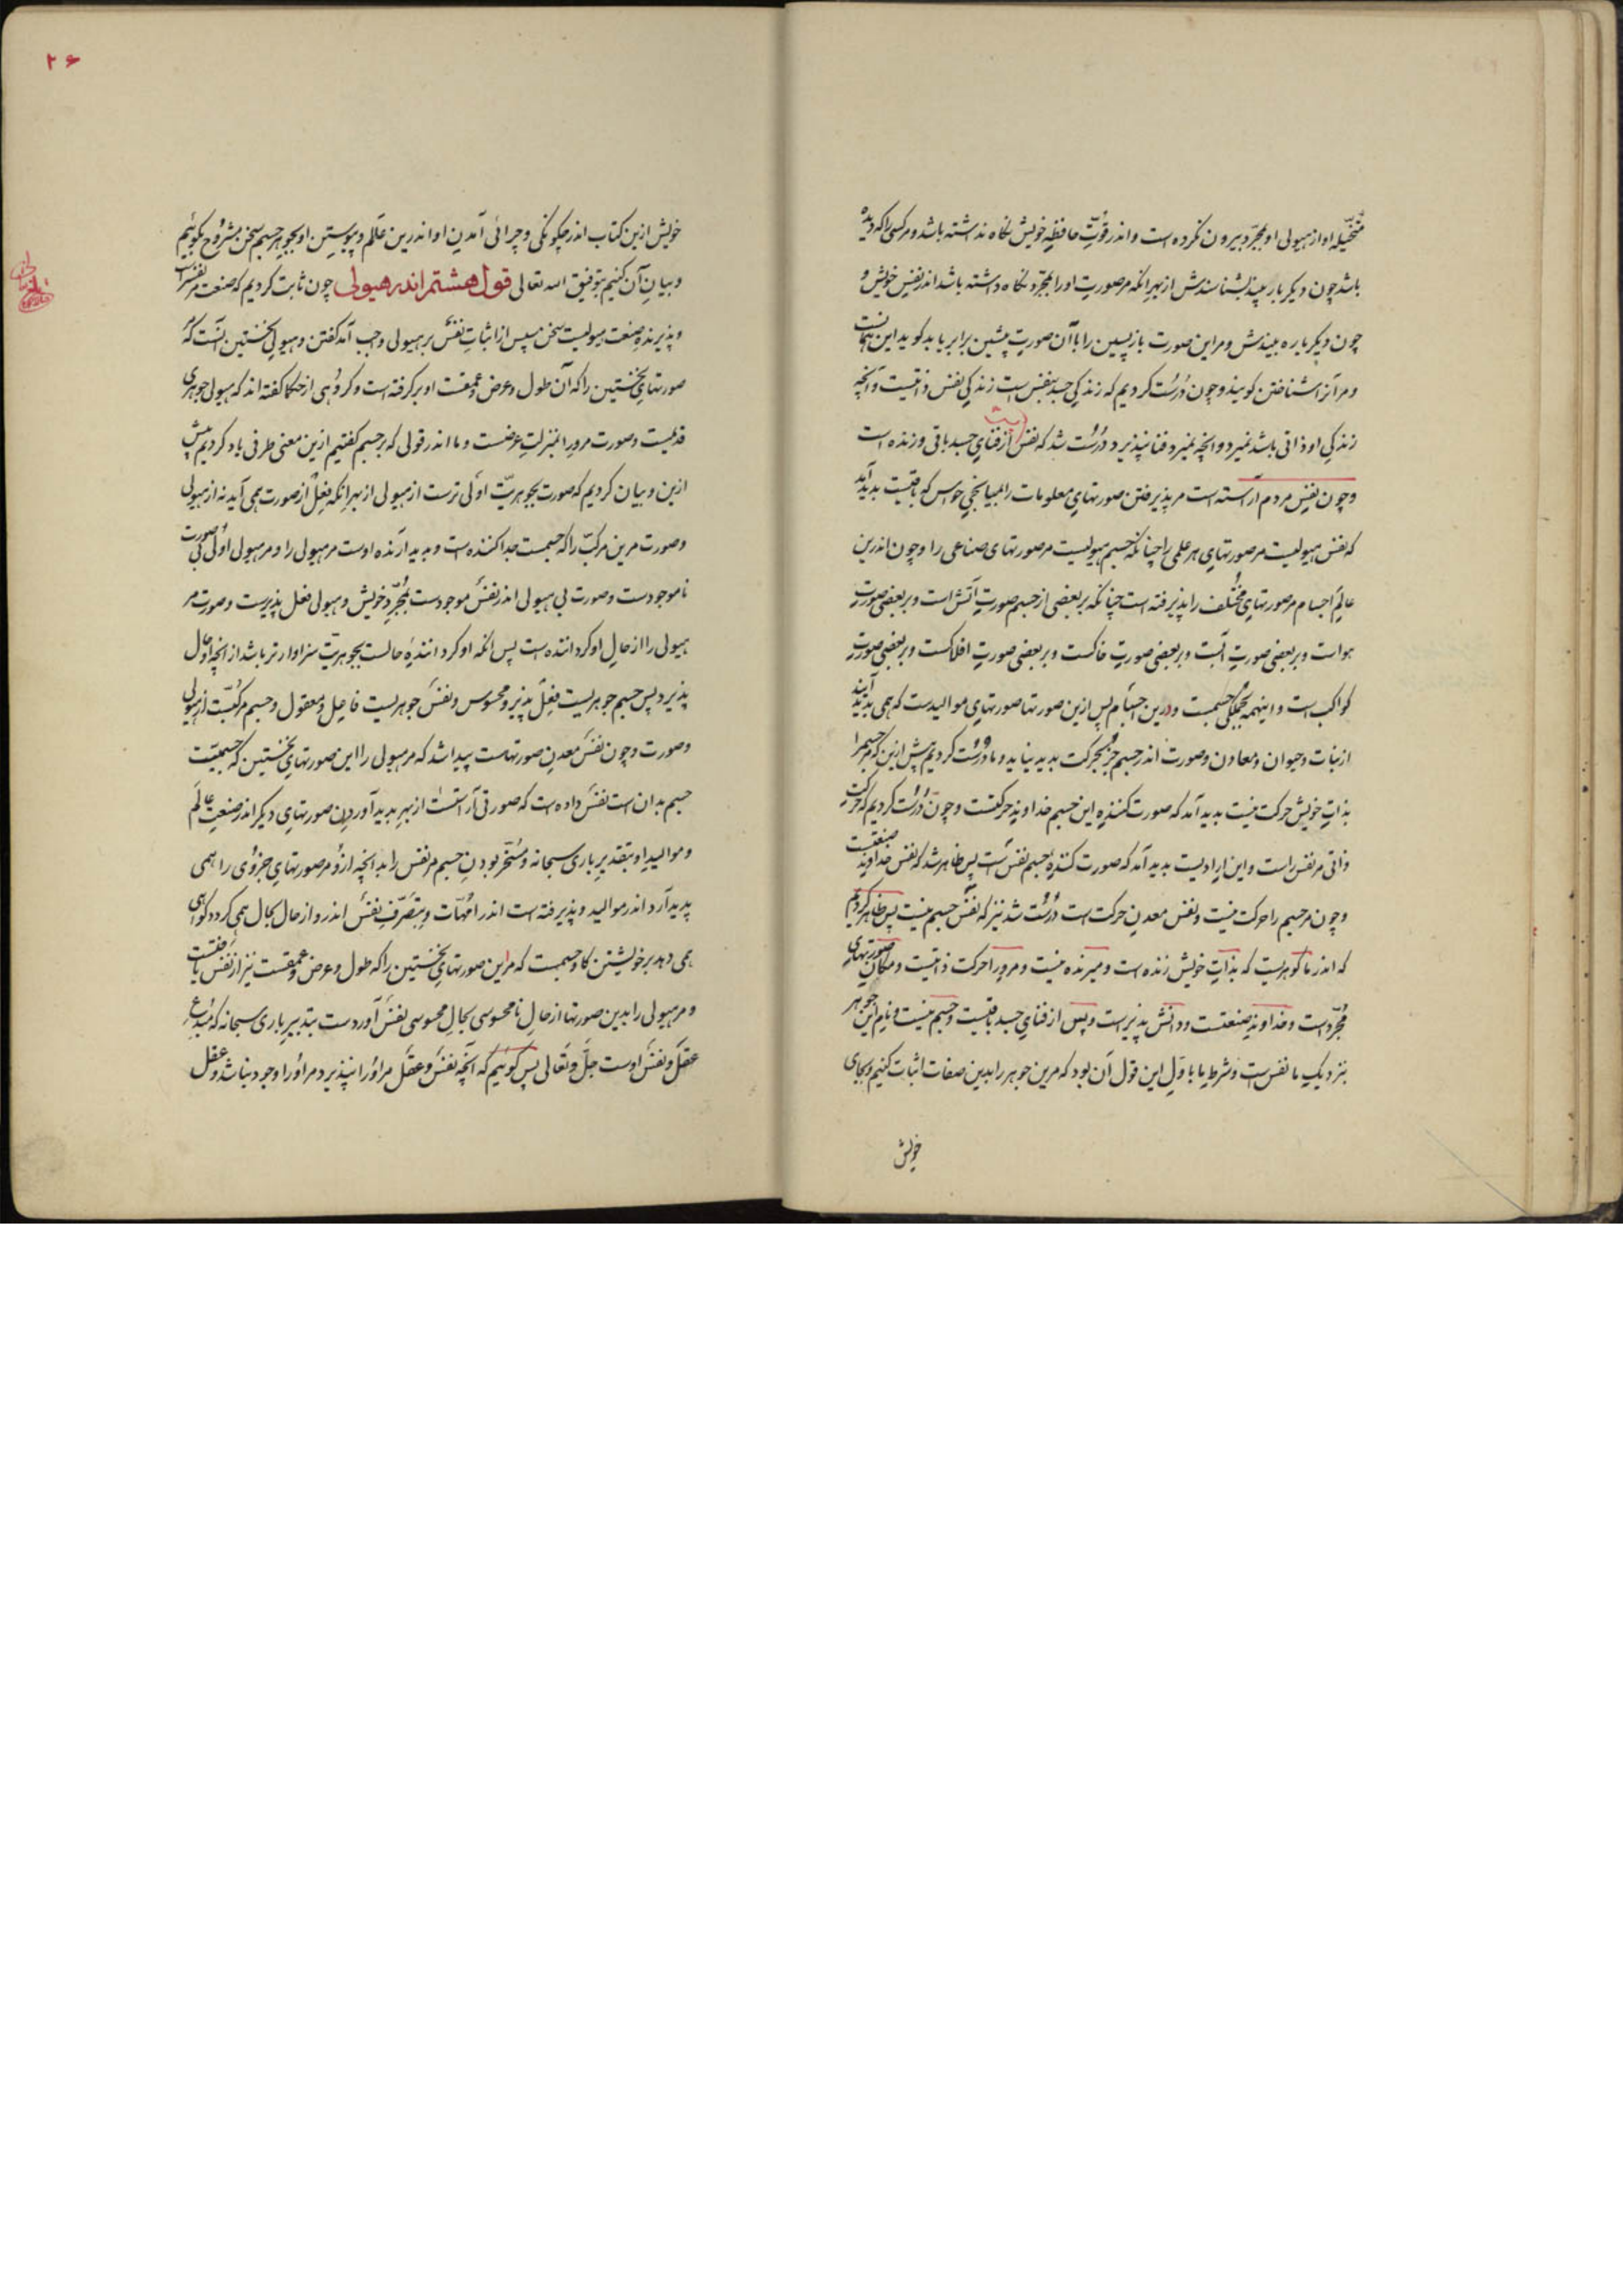 متخیله او از هیولی او مجرد بیرون نکرده است و اندر قوت حافظه خویش نگاه نداشته باشد و مر کسی را که دیده
باشد چون دیگر بار بیند بشناسدش از بهر آنکه مر صورت او را مجرد نگاه داشته باشد اندر نفس خویش و
چون دیگر باره بیندش و مر این صورت بازپسین را با آن صورت پیشین برابر یابد گوید این همانست
و مر آنرا شناختن گویند و چون درست کردیم که زندگی جسد بنفس است زندگی نفس ذاتیست و آنچه
زندگی او ذاتی باشد نمیرد و انچه نمیرد فنا نپذیرد درست شد که نفس از فنای جسد باقی و زنده است
و چون نفس مردم آراسته است مر پذیرفتن صورتهای معلومات را بمیانجی حواس که یافتست پدید آمد
که نفس هیولیست مر صورتهای هر علمی را چنانکه جسم هیولیست مر صورتهای صناعی را و چون اندرین
عالم اجسام مر صورتهای مختلف را پذیرفته است چنانکه بر بعضی از جسم صورت آتش است و بر بعضی صورت
هواست و بر بعضی صورت آبست و بر بعضی صورت خاکست و بر بعضی صورت افلاکست و بر بعضی صورت
کواکب است و اینهمه بجملگی جسمست و درین اجسام پس ازین صورتها صورتهای موالیدست که همی پدید آیند
از نبات و حیوان و معادن و صورت اندر جسم جز بحرکت پدید نیاید و ما درست کردیم پیش ازین که مر جسم را
بذات خویش حرکت نیست پدید آمد که صورت کننده این جسم خداوند حرکتست و چون درست کردیم که حرکت
ذاتی مر نفس راست و این ارادیست پدید آمد که صورت کننده جسم نفس است پس ظاهر شد که نفس خداوند صنعتست
و چون مر جسم را حرکت نیست و نفس معدن حرکت است درست شد نیز که نفس جسم نیست پس ظاهر کردیم
که اندر ما گوهریست که بذات خویش زنده است و میرنده نیست و مرورا حرکت ذاتیست و مکان صورتهای
مجردست و خداوند صنعتست و دانش پذیرست و پس از فنای جسد باقیست و جسم نیست و نام این جوهر
بنزدیک ما نفس است و شرط ما باول این قول آن بود که مرین جوهر را بدین صفات اثبات کنیم و بجای
خویش
۲۶
خویش ازین کتاب اندر چگونگی و چرائی آمدن او اندرین عالم و پیوستن او بجوهر جسم سخن مشروح بگوئیم
و بیان آن کنیم بتوفیق الله تعالی قول هشتم اندر هیولی چون ثابت کردیم که صنعت مر نفس راست
و پذیرنده صنعت هیولیست سخن سپس از اثبات نفس بر هیولی واجب آمد گفتن و هیولی نخستین آنست که
صورتهای نخستین را که آن طول و عرض و عمقست او بر گرفته است و گروهی از حکما گفته اند که هیولی جوهری
قدیمست و صورت مرورا بمنزلت عرضست و ما اندر قولی که بر جسم گفتیم ازین معنی طرفی یاد کردیم پیش
ازین و بیان کردیم که صورت بجوهریت اولی ترست از هیولی از بهر انکه فعل از صورت همی آید نه از هیولی
و صورت مرین مرکب را که جسمست جدا کننده است و پدید آرنده اوست مر هیولی را و مر هیولی اولی بی صورت
ناموجودست و صورت بی هیولی اندر نفس موجودست بمجرد خویش و هیولی فعل پذیرست و صورت مر
هیولی را از حال او گرداننده است پس انکه او گرداننده حالست بجوهریت سزاوارتر باشد از انچه او حال
پذیرد پس جسم جوهریست فعل پذیر و محسوس و نفس جوهریست فاعل و معقول و جسم مرکبست از هیولی
و صورت و چون نفس معدن صورتهاست پیدا شد که مر هیولی را این صورتهای نخستین که جسمیت
جسم بدان است نفس داده است که صورتی آراستست از بهر پدید آوردن صورتهای دیگر اندر صنعت عالم
و موالید او بتقدیر باری سبحانه و مسخر بودن جسم مر نفس را بدانچه ازو مر صورتهای جزوی را همی
پدید آرد اندر موالید و پذیرفته است اندر امهات و بتصرف نفس اندرو از حال بحال همی گردد گواهی
همی دهد بر خویشتن کاو جسمست که مر این صورتهای نخستین را که طول و عرض و عمقست نیز از نفس یافتست
و مر هیولی را بدین صورتها از حال نامحسوسی بحال محسوسی نفس آوردست بتدبیر باری سبحانه که مبدع
عقل و نفس اوست جل و تعالی پس گوئیم که آنچه نفس و عقل مر او را نپذیرد مر او را وجود نباشد و عقل